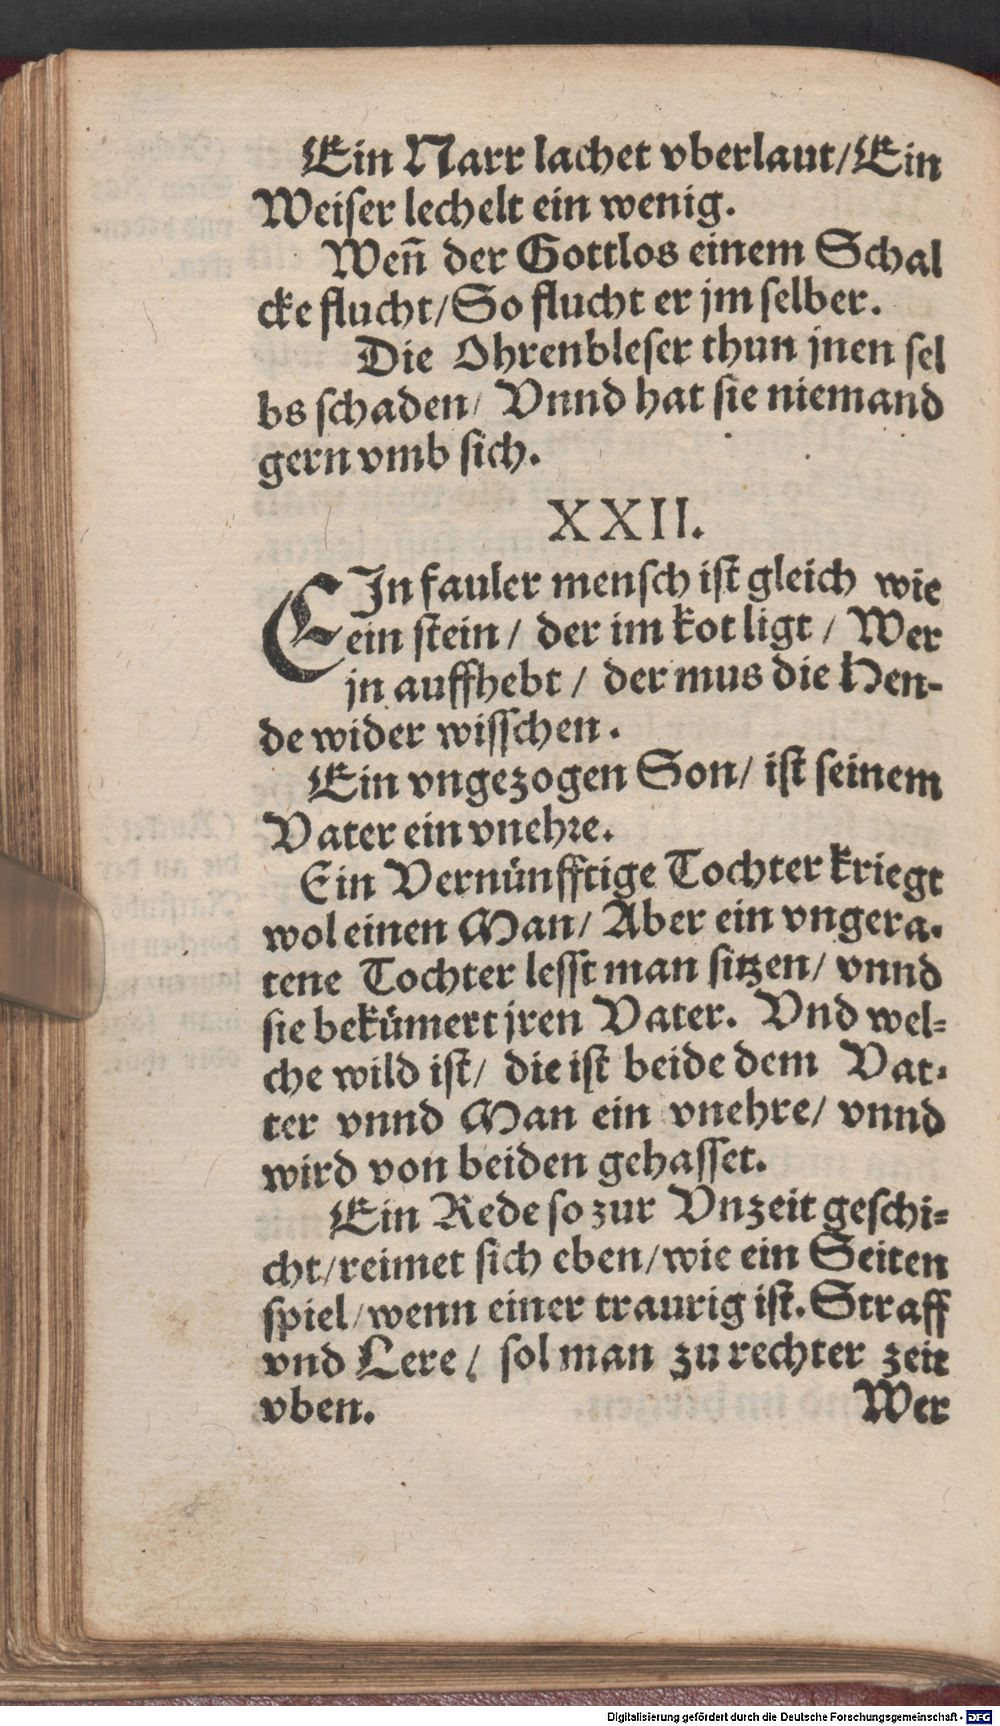 Ein Narr lachet vberlaut/Ein
Weiſer lechelt ein wenig.
Weñ der Gottlos einem Schal
cke flucht/So flucht er jm ſelber.
Die Ohrenbleſer thun jnen ſel
bs ſchaden/ Vnnd hat ſie niemand
gern vmb ſich.
XXII.
EIn fauler menſch iſt gleich wie
ein ſtein/ der im kot ligt/ Wer
jn auffhebt/ der mus die Hen-
de wider wiſſchen.
Ein vngezogen Son/ iſt ſeinem
Vater ein vnehꝛe.
Ein Vernünfftige Tochter kriegt
wol einen Man/ Aber ein vngera-
tene Tochter leſſt man ſitzen/ vnnd
ſie bekümert jren Vater. Vnd wel-
che wild iſt/ die iſt beide dem Vat-
ter vnnd Man ein vnehre/ vnnd
wird von beiden gehaſſet.
Ein Rede ſo zur Vnzeit geſchi-
cht/reimet ſich eben/wie ein Seiten
ſpiel/wenn einer traurig iſt. Straff
vnd Lere/ ſol man zu rechter zeit
vben. Wer
Digitalisierung gefördert durch die Deutsche Forschungsgemeinschaft - DFG